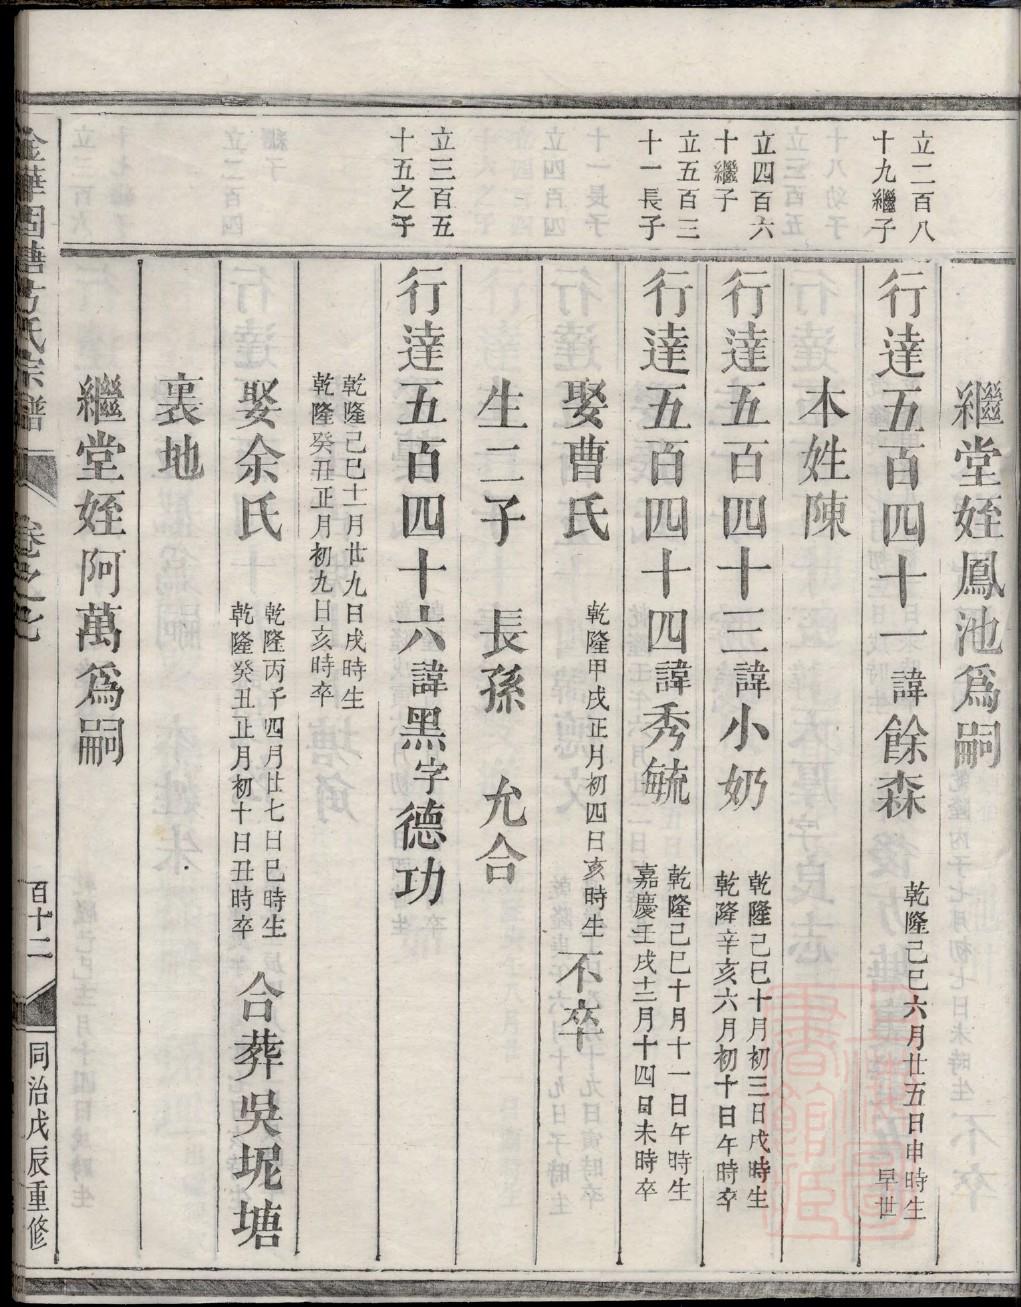 繼堂姪鳳池為嗣
立二百八
十九繼子
行達五百四十一諱餘森
乾隆己巳六月廿五日申時生
早世
本姓陳
立四百六
十繼子
行達五百四十三諱小奶
乾隆己巳十月初三日戌時生
乾隆辛亥六月初十日午時卒
立五百三
十一長子
行達五百四十四諱秀毓
乾隆己巳十月十一日午時生
嘉慶壬戌十二月十四日未時卒
娶曹氏
乾隆甲戌正月初四日亥時生
不卒
生二子 長孫 允合
立三百五
十五之子
行達五百四十六諱黑字德功
乾隆己巳十一月廿九日戌時生
乾隆癸丑正月初九日亥時卒
娶余氏
乾隆丙子四月廿七日巳時生
乾隆癸丑正月初十日丑時卒
合葬吳坭塘
裏地
繼堂姪阿萬為嗣
金華固塘方氏宗譜
卷之七
百十二
同治戊辰重修